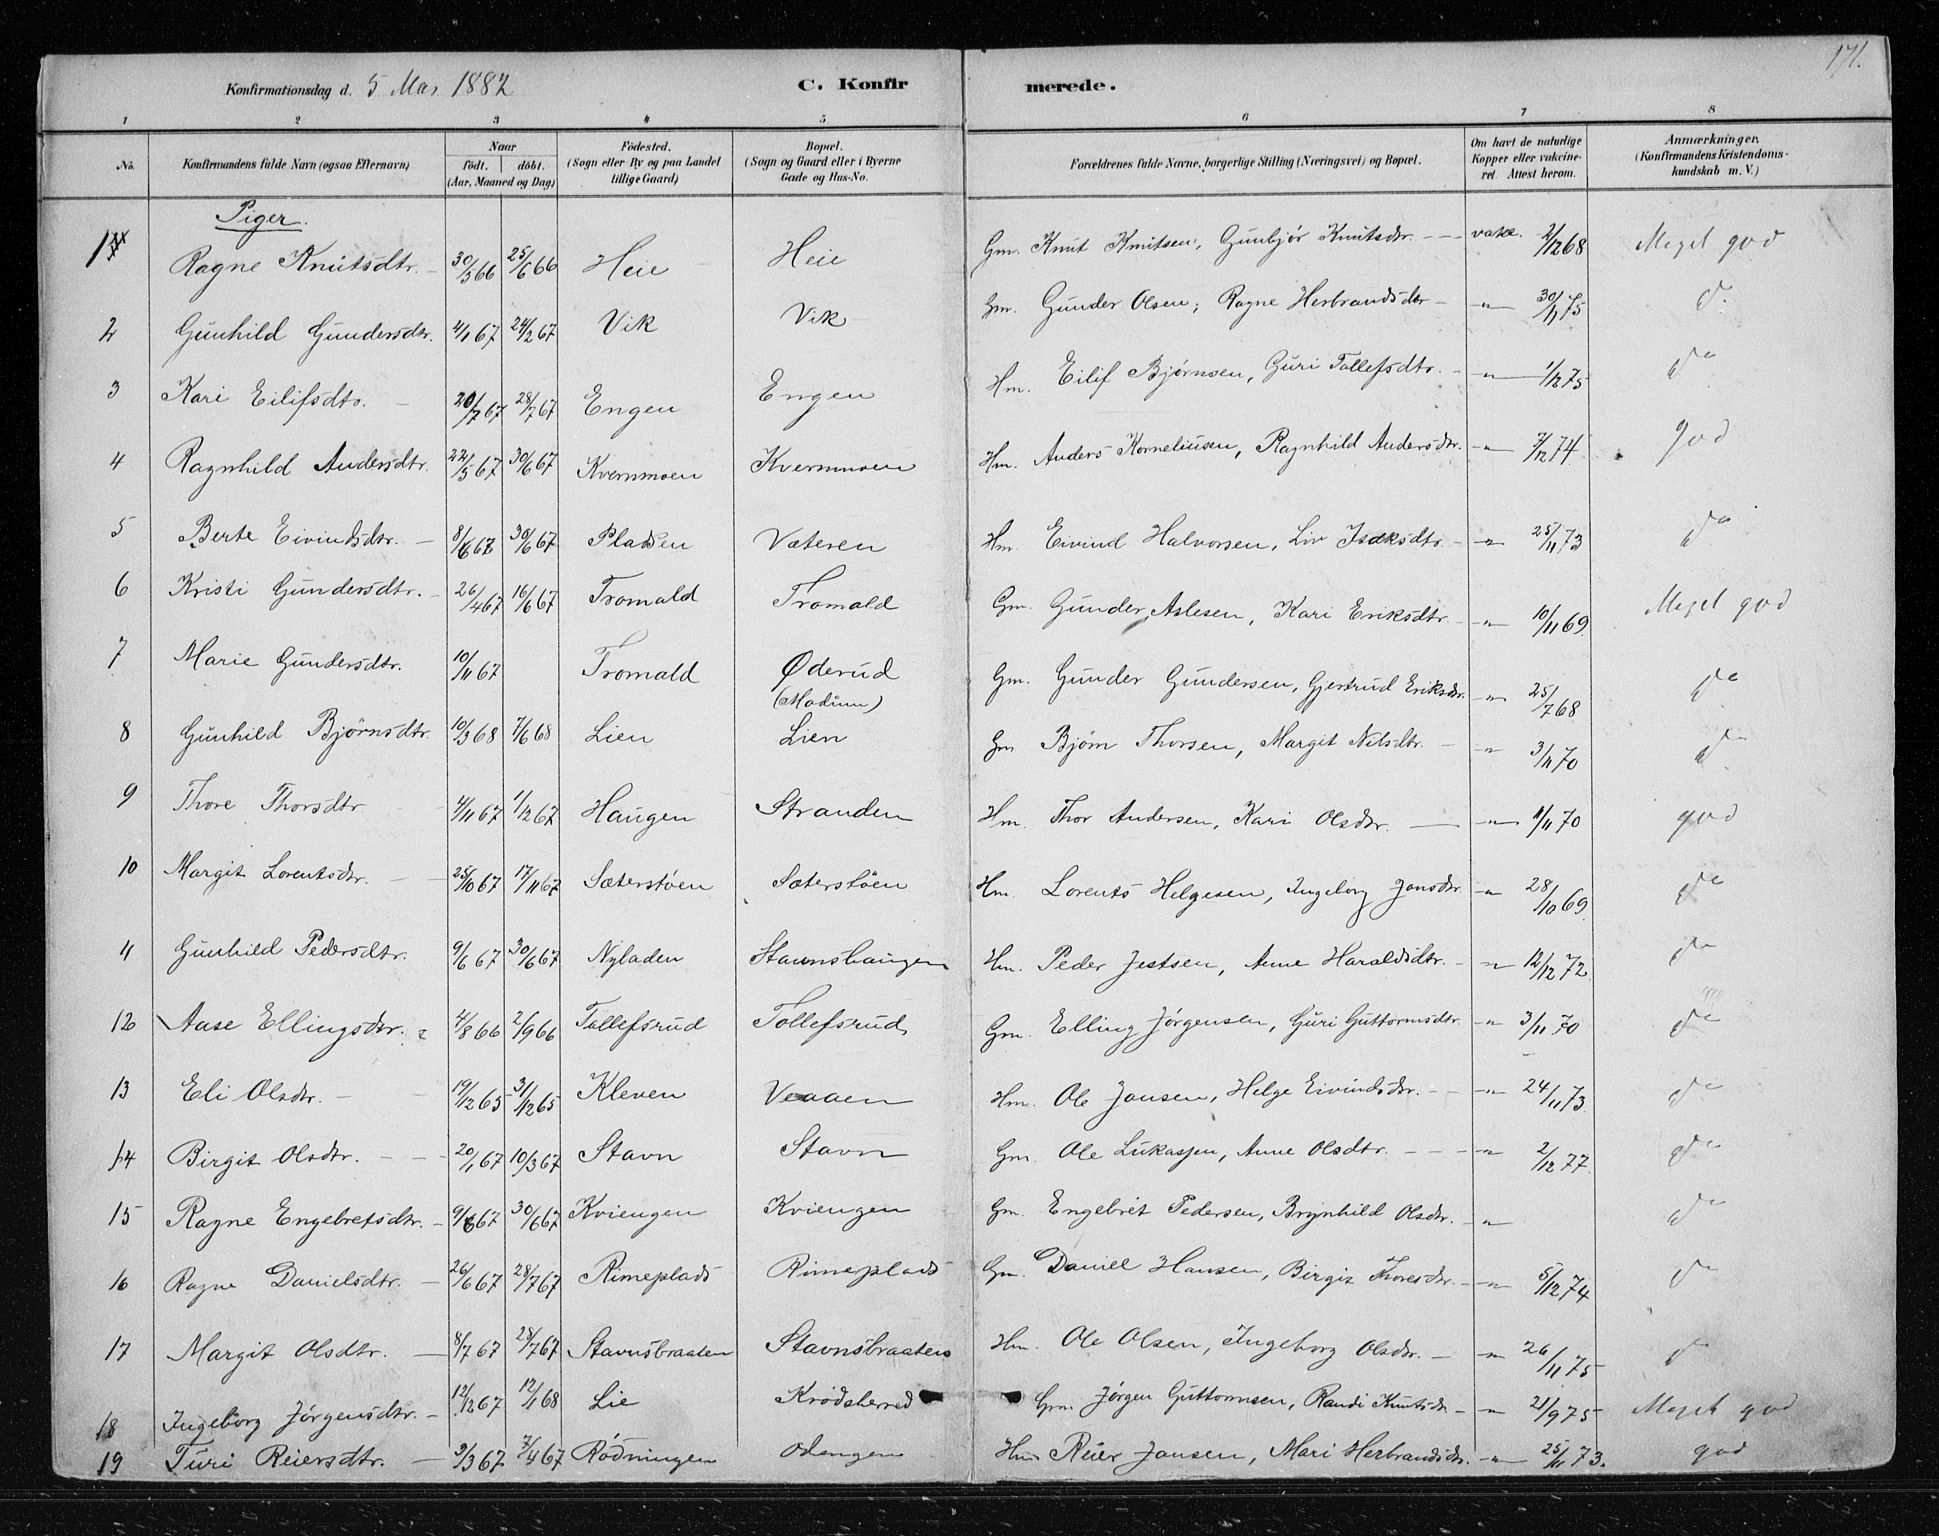 171.
Konfirmationsdag d. 5 Mar 1882 C. Konfirmerede.
1 2 3 4 5 6 7 8
No. Konfirmandens fulde Navn (ogsaa Efternavn) Naar født. døbt. (Aar, Maaned og Dag) Fødested. (Sogn eller By og paa Landet tillige Gaard) Bopæl. (Sogn og Gaard eller i Byerne Gade og Hus-No. Forældrenes fulde Navne, borgerlige Stilling (Næringsvei) og Bopæl. Om havt de naturlige Kopper eller vakcineret. Attest herom. Anmærkninger. (Konfirmandens Kristendomskundskab m. V.)
Piger.
1 Ragne Knutsdtr. 30/5 66 25/6 66 Heie Heie Gm. Knut Knutsen, Gunbjør Knutsdtr. vakc. 2/12 68 Meget god
2 Gunhild Gundersdtr. 4/1 67 24/2 67 Vik Vik Gm. Gunder Olsen; Ragne Herbrandsdtr - " 30/11 75 do
3 Kari Eilifsdtr. 20/7 67 28/7 67 Engen Engen Hm. Eilif Bjørnsen, Guri Tollefsdtr. - " 1/12 75 do
4 Ragnhild Andersdtr. 22/5 67 30/6 67 Kvernmoen Kvernmoen Hm. Anders Korneliusen, Ragnhild Andersdtr. " 7/12 74 god
5 Berte Eivindsdtr. 8/6 67 30/6 67 Pladsen Væteren Hm. Eivind Halvorsen, Liv Isaksdtr. " 25/11 73 do
6 Kristi Gundersdtr. 26/4 67 16/6 67 Tromald Tromald Gm. Gunder Aslesen, Kari Eriksdtr. " 10/11 69. Meget god
7 Marie Gundersdtr. 10/11 67 Tromald Øderud (Modum) Gm. Gunder Gundersen, Gjertrud Eriksdtr. " 25/7 68 do
8 Gunhild Bjørnsdtr. 10/3 68 7/6 68 Lien Lien Gm Bjørn Thorsen, Margit Nilsdtr. - " 3/11 70 do
9 Thore Thorsdtr 4/11 67 1/12 67 Haugen Stranden Hm. Thor Andersen, Kari Olsdtr. " 1/11 70 god
10 Margit Lorentsdtr. 25/10 67 17/11 67 Sæterstøen Sæterstøen Hm. Lorents Helgesen, Ingeborg Jonsdtr. " 28/10 69. do
11 Gunhild Pedersdtr. 9/6 67 30/6 67 Nyladen Stavnshaugen Hm. Peder Jestsen, Anne Haraldsdtr. " 12/12 72 do
12 Aase Ellingsdtr. 4/8 66 2/9 66 Tollefsrud Tollefsrud Gm. Elling Jørgensen, Guri Guttormsdtr. " 3/11 70 do
13 Eli Olsdtr. 19/12 65 31/12 65 Kleven Hm. Ole Jonsen, Helge Eivindsdtr. " 24/11 73 do
14 Birgit Olsdtr. 20/1 67 10/3 67 Stavn Stavn Gm. Ole Lukassen, Anne Olsdtr. " 2/12 77. do
15 Ragne Engebretsdtr. 9/6 67 30/6 67 Kviengen Kviengen Gm. Engebret Pedersen, Brynhild Olsdtr. " do
16 Ragne Danielsdtr. 26/6 67 28/7 67 Rimeplads Rimeplads Gm. Daniel Hansen, Birgit Thoresdtr. " 5/12 74 do
17 Margit Olsdtr. 8/7 67 28/7 67 Stavnsbraaten Stavnsbraaten Hm. Ole Olsen, Ingeborg Olsdtr. - " 26/11 75 do
18 Ingeborg Jørgensdtr. 12/12 67 12/1 68 Lie Krødsherred Gm. Jørgen Guttormsen, Randi Knutsdtr. - " 21/9 75 Meget god
19 Turi Reiersdtr. 3/3 67 7/4 67 Rødningen Odengen Hm Reier Jansen, Mari Herbrandsdtr. " 25/11 73. god